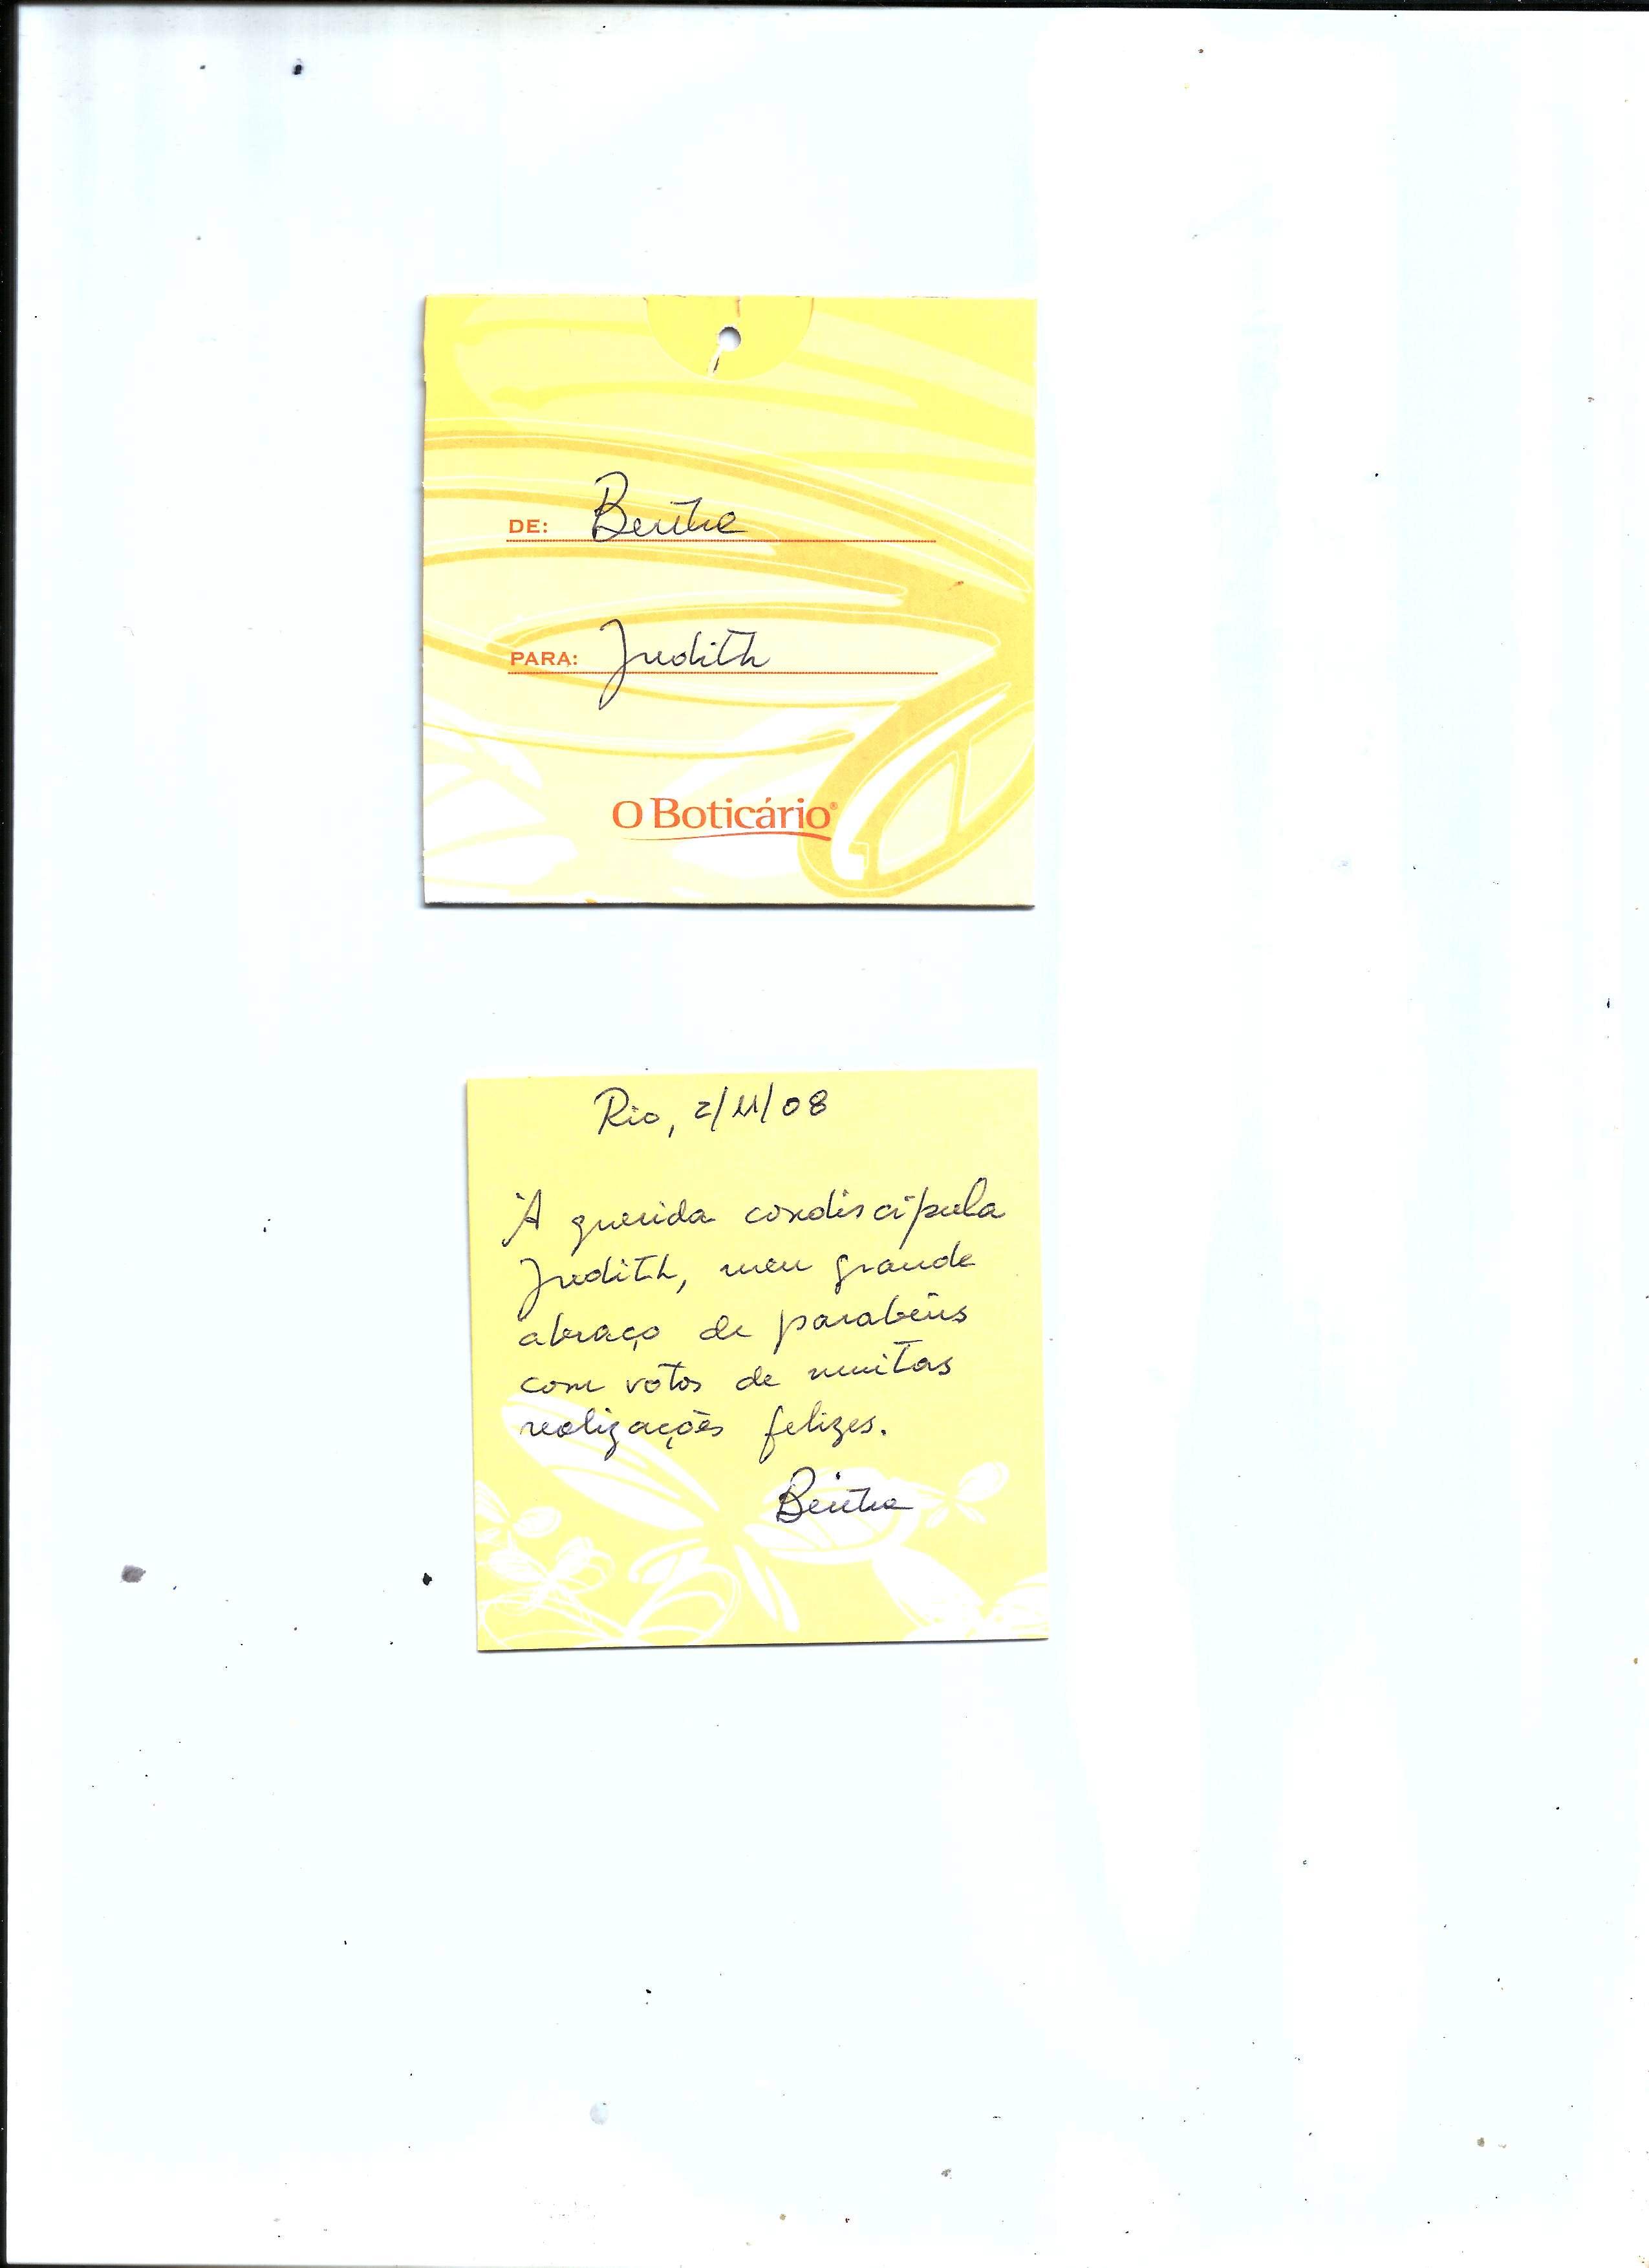 DE: Bertha
PARA: Judith
O Boticário®
Rio, 2/11/08
À querida condiscípula
Judith, meu grande
abraço de parabéns
com votos de muitas
realizações felizes.
Bertha